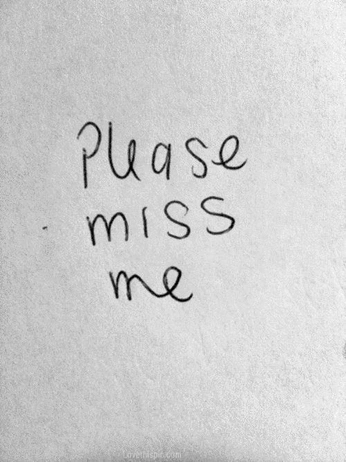 Please
miss
me
Lovethispic.com